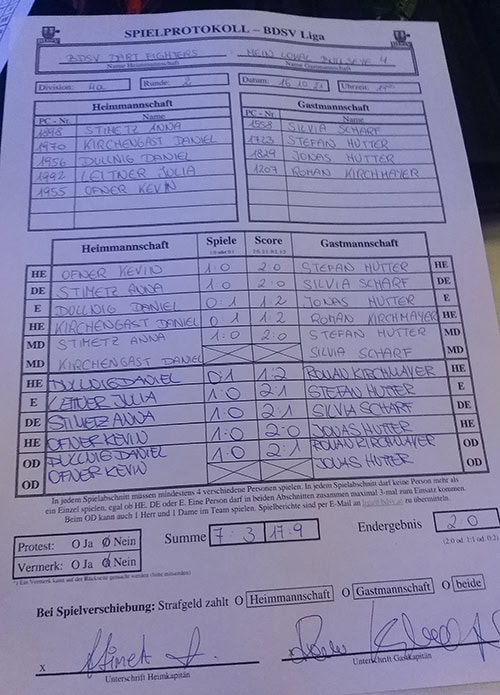 SPIELPROTOKOLL – BDSV Liga
BDSV DART FIGHTERS MEIN LOKAL BULLSEYE 4
Name Heimmannschaft Name Gastmannschaft
Division: 4a Runde: 2 Datum: 16.10. Uhrzeit:
Heimmannschaft Gastmannschaft
PC - Nr. Name PC - Nr. Name
1898 STIMETZ ANNA 1958 SILVIA SCHARF
1970 KIRCHENGAST DANIEL 1723 STEFAN HUTTER
1956 DULLNIG DANIEL 1829 JONAS HUTTER
1992 LEITNER JULIA 1207 ROMAN KIRCHMAYER
1955 OFNER KEVIN
Heimmannschaft Spiele Score Gastmannschaft
HE OFNER KEVIN 1:0 2:0 STEFAN HUTTER HE
DE STIMETZ ANNA 1:0 2:0 SILVIA SCHARF DE
E DULLNIG DANIEL 0:1 1:2 JONAS HUTTER E
HE KIRCHENGAST DANIEL 0 1 1:2 ROMAN KIRCHMAYER HE
MD STIMETZ ANNA 1:0 2:0 STEFAN HUTTER MD
MD KIRCHENGAST DANIEL SILVIA SCHARF MD
HE DULLNIG DANIEL 0:1 1:2 ROMAN KIRCHMAYER HE
E LEITNER JULIA 1:0 2:1 STEFAN HUTTER E
DE STIMETZ ANNA 1:0 2:1 SILVIA SCHARF DE
HE OFNER KEVIN 1:0 2:0 JONAS HUTTER HE
OD DULLNIG DANIEL 1:0 2:1 ROMAN KIRCHMAYER OD
OD OFNER KEVIN JONAS HUTTER OD
In jedem Spielabschnitt müssen mindestens 4 verschiedene Personen spielen. In jedem Spielabschnitt darf keine Person mehr als
ein Einzel spielen, egal ob HE, DE oder E. Eine Person darf in beiden Abschnitten zusammen maximal 3-mal zum Einsatz kommen.
Beim OD kann auch 1 Herr und 1 Dame im Team spielen. Spielberichte sind per E-Mail an zu übermitteln.
Protest: O Ja O Nein Summe 7:3 17:9 Endergebnis 2 0
Vermerk: O Ja O Nein (2:0 od. 1:1 od. 0:2)
*) Ein Vermerk kann auf der Rückseite gemacht werden (bitte ankreuzen)
Bei Spielverschiebung: Strafgeld zahlt O Heimmannschaft O Gastmannschaft O beide
x
Unterschrift Heimkapitän Unterschrift Gastkapitän